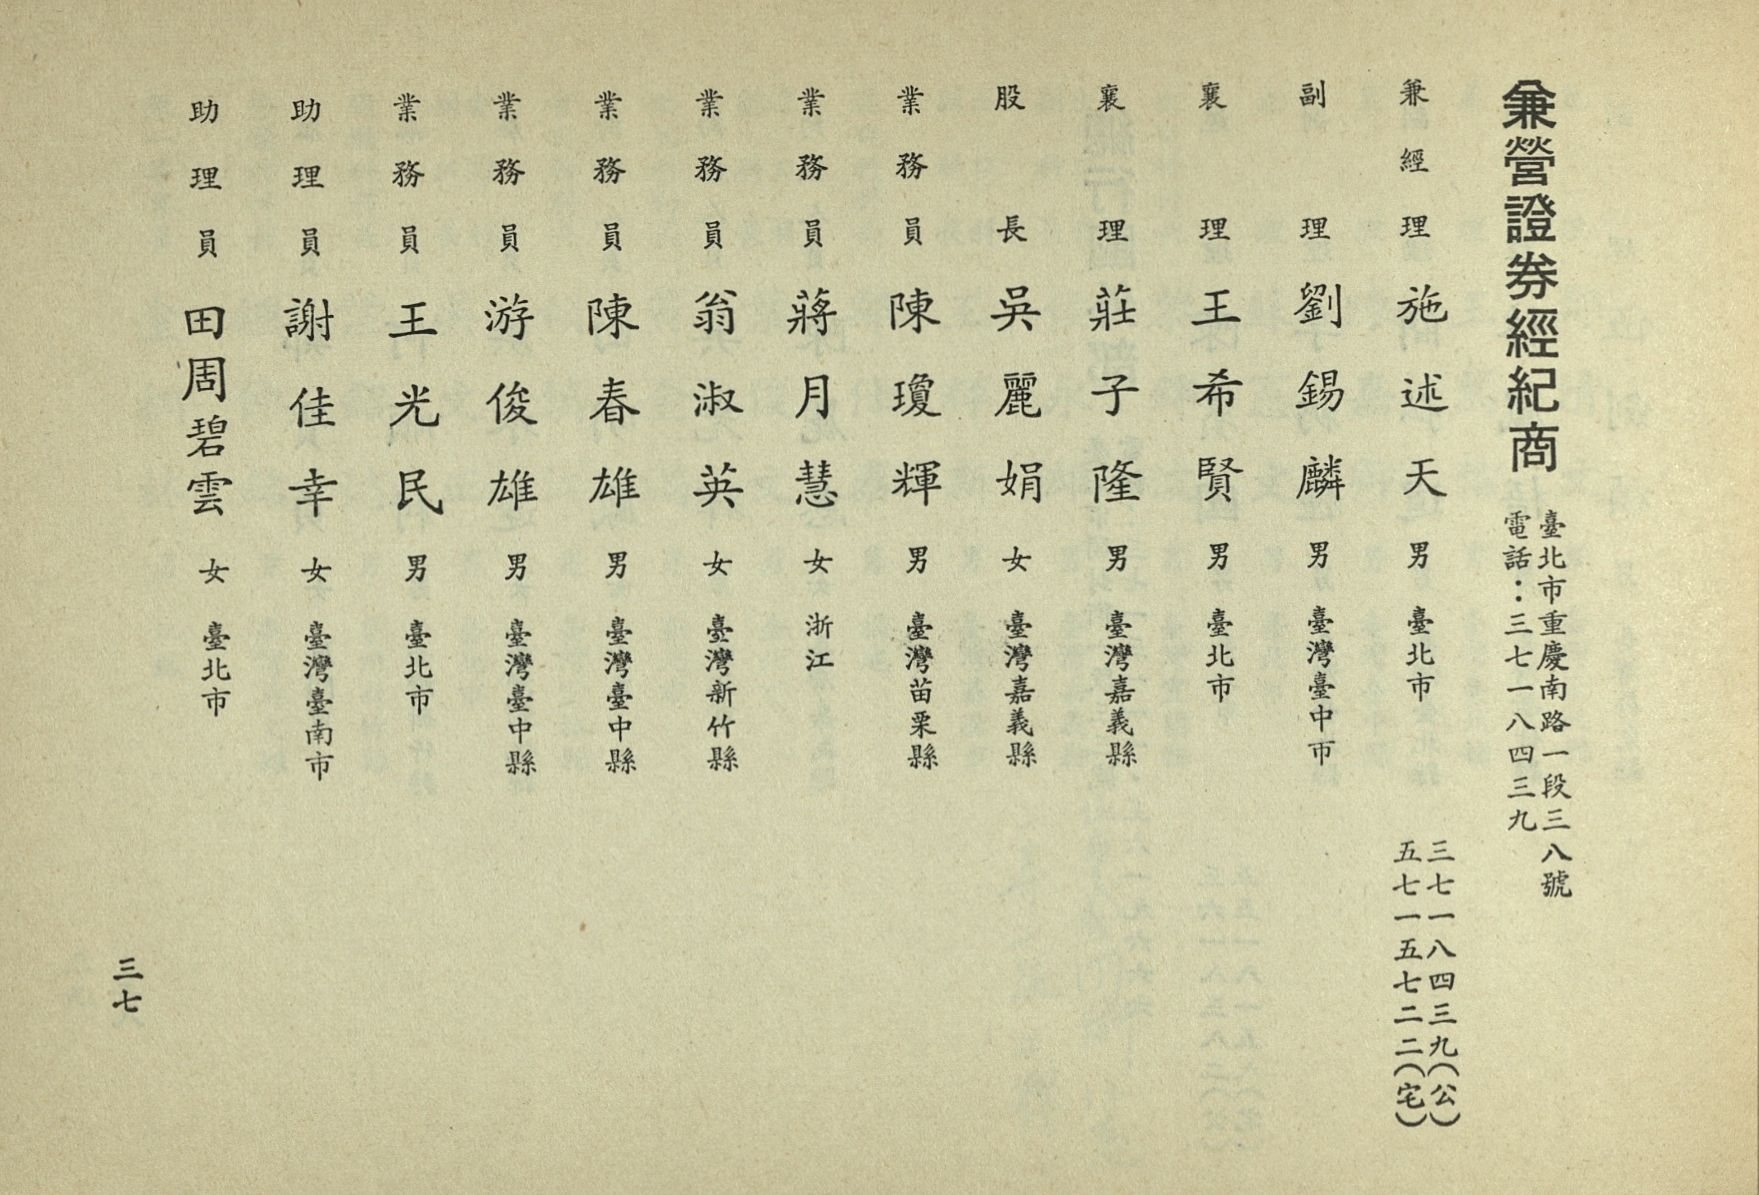 兼營證券經紀商
臺北市重慶南路一段三八號
電話：三七一八四三九
兼經理 施述天 男 臺北市
三七一八四三九（公）
五七一五七二二（宅）
副理 劉錫麟 男 臺灣臺中市
襄理 王希賢 男 臺北市
襄理 莊子隆 男 臺灣嘉義縣
股長 吳麗娟 女 臺灣嘉義縣
業務員 陳瓊輝 男 臺灣苗栗縣
業務員 蔣月慧 女 浙江
業務員 翁淑英 女 臺灣新竹縣
業務員 陳春雄 男 臺灣臺中縣
業務員 游俊雄 男 臺灣臺中縣
業務員 王光民 男 臺北市
助理員 謝佳幸 女 臺灣臺南市
助理員 田周碧雲 女 臺北市
三七